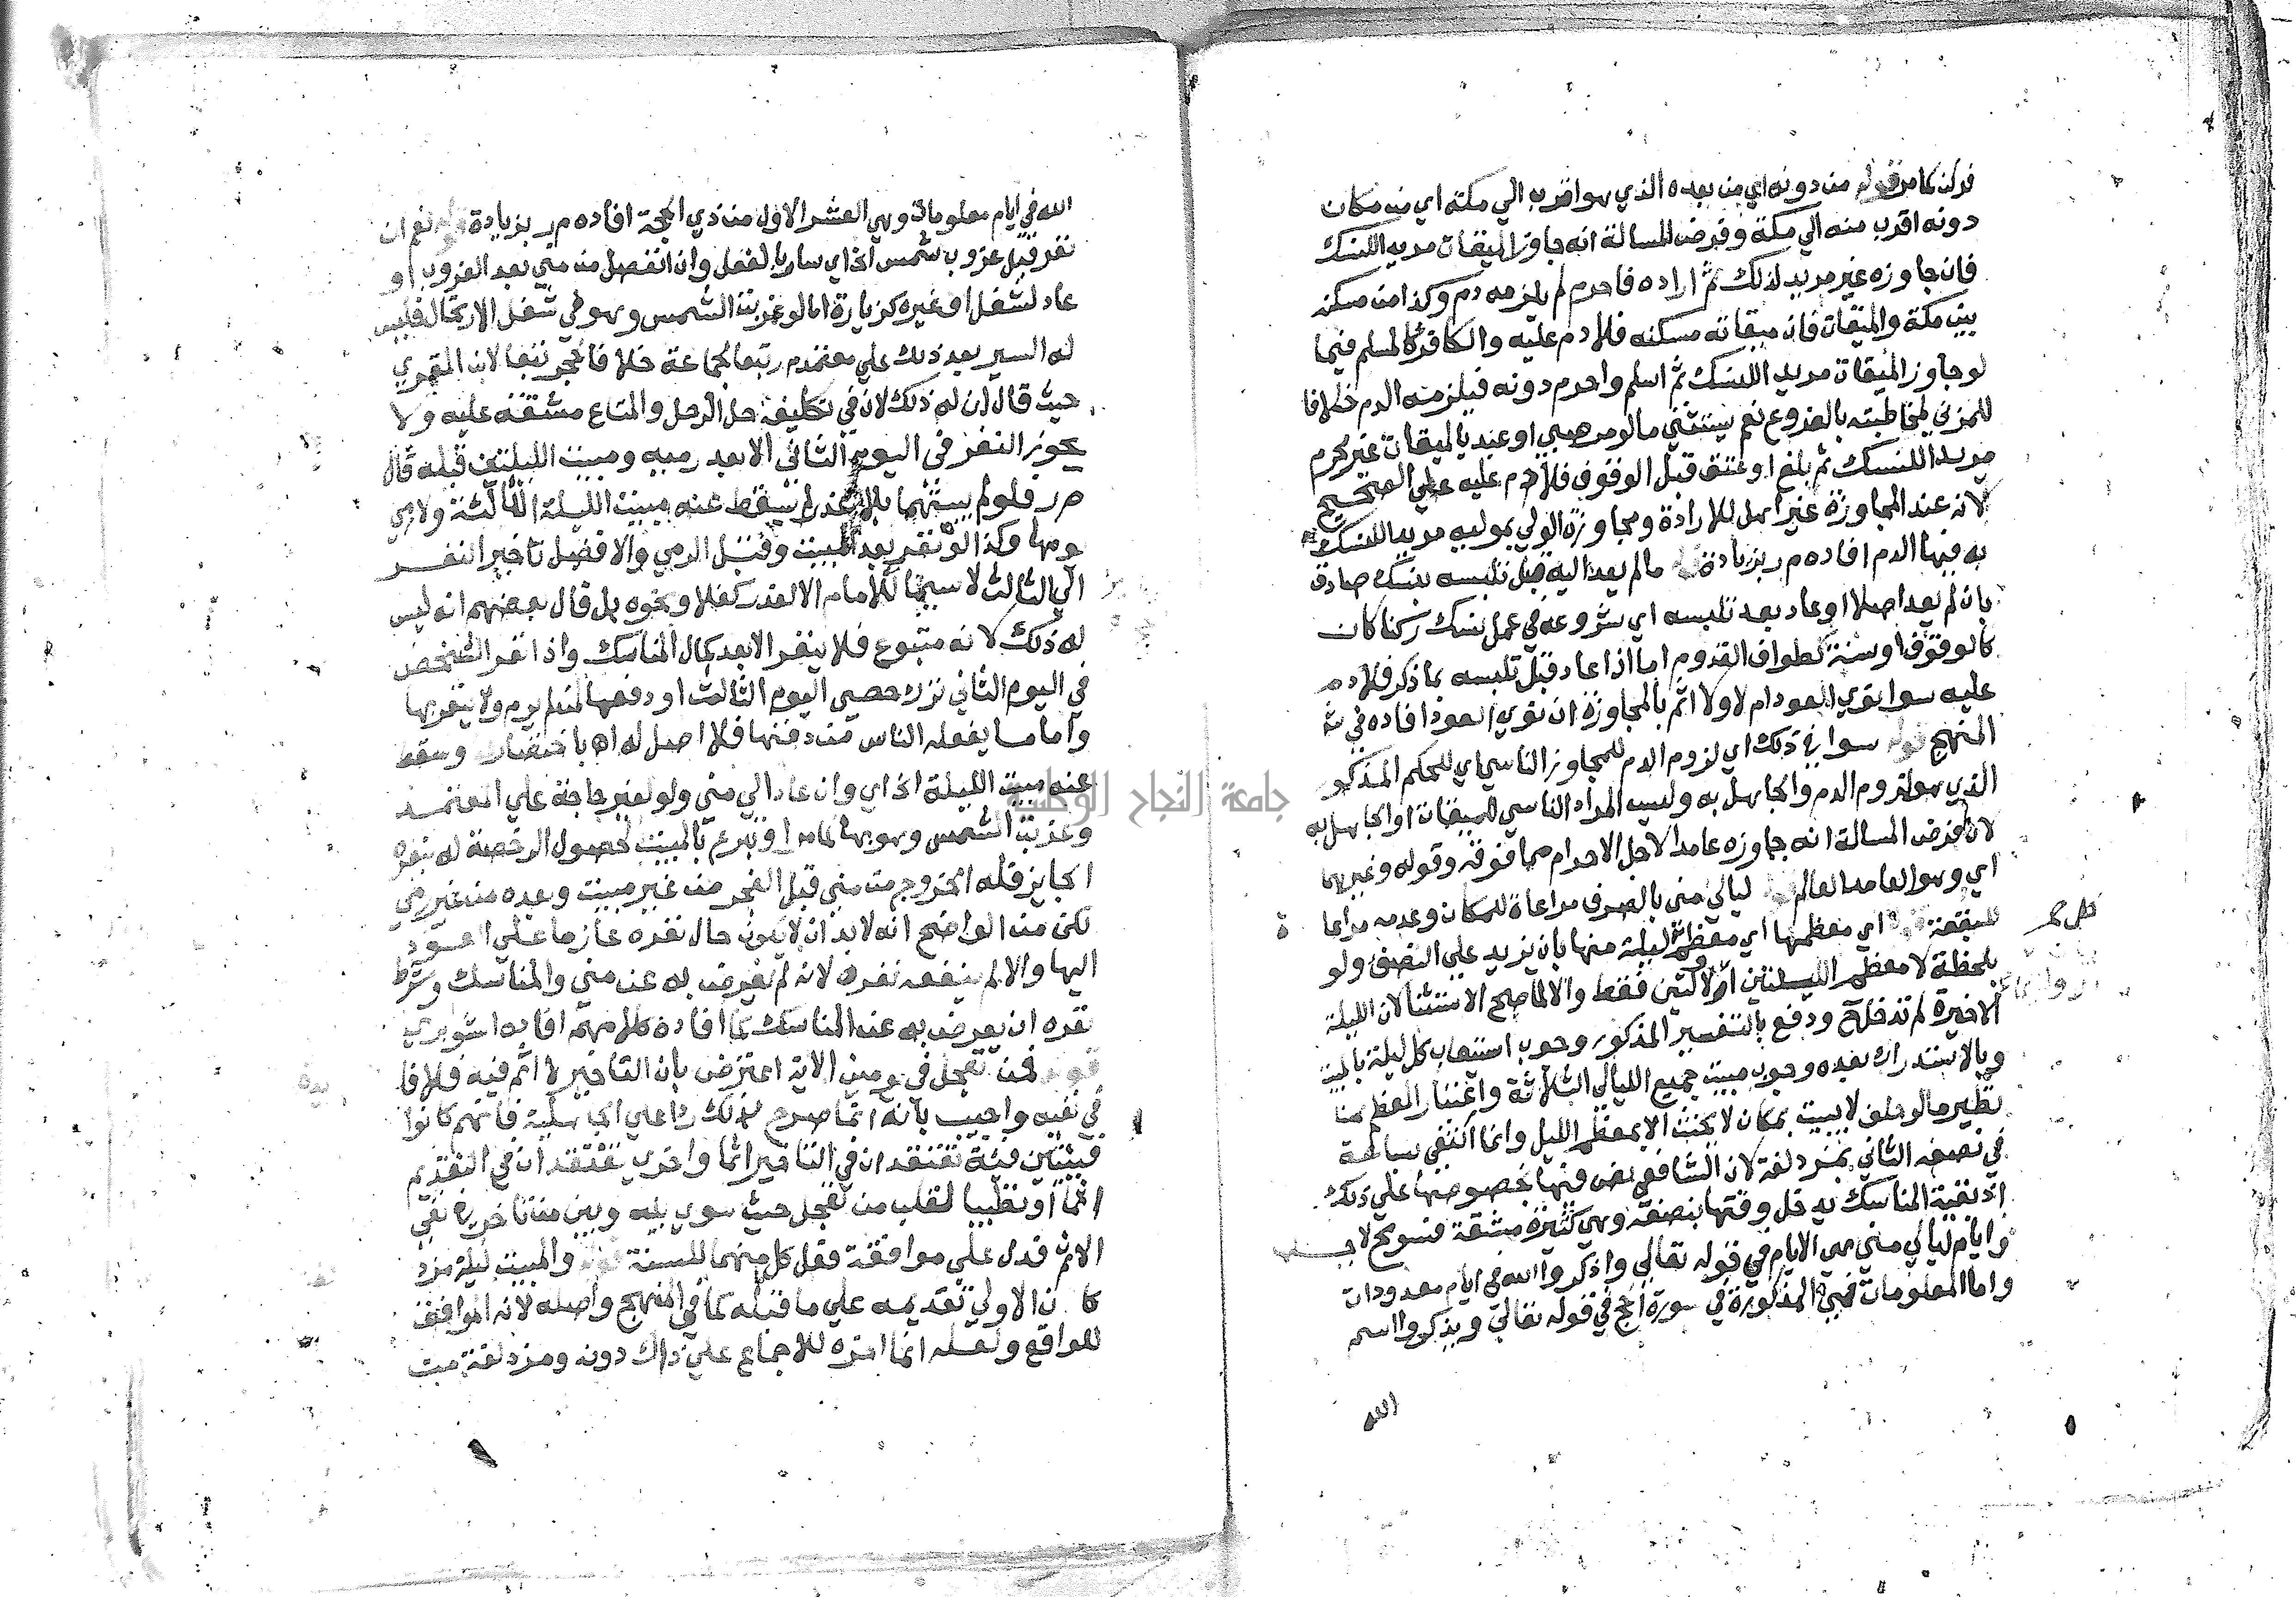 فركن كما مر قوله من دونه اي من بعده الذي هو اقرب الي مكة اي من مكان
دونه اقرب منه الي مكة وفرض المسالة انه جاوز الميقات مريد النسك
فان جاوزه غير مريد لذلك ثم اراده فاحرم لم يلزمه دم وكذا من مسكنه
بين مكة والميقات فان ميقاته مسكنه فلا دم عليه والكافر كالمسلم فيما
لو جاوز الميقات مريد النسك ثم اسلم واحرم دونه فيلزمه الدم خلافا
للمزني لمخاطبته بالفروع نعم يستثني ما لو مر صبي او عبد بالميقات غير محرم
مريد النسك ثم بلغ او عتق قبل الوقوف فلا دم عليه علي الصحيح
لانه عند المجاوزة غير اهل للارادة ومجاوزة الولي بموليه مريد النسك
به فيها الدم افاده م ر بزيادة قوله ما لم يعد اليه قبل تلبسه بنسك صادق
بان لم يعد اصلا او عاد بعد تلبسه اي شروعه في عمل نسك ركنا كان
كالوقوف او سنة كطواف القدوم اما اذا عاد قبل تلبسه بما ذكر فلا دم
عليه سوا نوي العود ام لا ولا اثم بالمجاوزة ان نوي العود افاده في ش
المنهج قوله سوا في ذلك اي لزوم الدم للمجاوز الناسي اي للحكم المذكور
الذي هو لزوم الدم والجاهل به وليس المراد الناسي للميقات او الجاهل به
لان فرض المسالة انه جاوزه عامدا لاجل الاحرام مما فوقه وقوله وغيرهما
اي وهو العامد العالم قوله ليالي مني بالصرف مراعاة للمكان وعدمه مراعا
للبقعة قوله اي معظمها اي معظم كل ليلة منها بان يزيد علي النصف ولو
بلحظة لا معظم الليلتين الاولتين فقط والا لما صح الاستثنا لان الليلة
الاخيرة لم تدخل ح ودفع بالتفسير المذكور وجوب استيعاب كل ليلة بالمبيت
وبالاستدراك بعده وجوب مبيت جميع الليالي الثلاثة واعتبار المعظم هنا
نظير ما لو حلف لا يبيت بمكان لا يحنث الا بمعظم الليل وانما اكتفي بساعة
في نصفه الثاني بمزدلفة لان الشافعي نص فيها بخصوصها علي ذلك
اذ بقية المناسك يدخل وقتها بنصفه وهي كثيرة مشقة فسومح لاجلها
وايام ليالي مني هي الايام في قوله تعالي واذكروا الله في ايام معدودات
واما المعلومات فهي المذكورة في سورة الحج في قوله تعالي ويذكروا اسم
الله
الله في ايام معلومات وهي العشر الاول من ذي الحجة افاده م ر بزيادة قوله نعم ان
نفر قبل غروب شمس الخ اي سار بالفعل وان انفصل من مني بعد الغروب او
عاد لشغل او غيره كزيارة اما لو غربت الشمس وهو في شغل الارتحال فليس
له السير بعد ذلك علي معتمد م ر تبعا لجماعة خلافا لحجر تبعا لابن المقري
حيث قال ان له ذلك لان في تكليفه حل الرحل والمتاع مشقة عليه ولا
يجوز النفر في اليوم الثاني الا بعد رميه ومبيت الليلتين قبله قال
م ر فلو لم يبيتهما بلا عذر لم يسقط عنه مبيت الليلة الثالثة ولا رمي
يومها وكذا لو نفر بعد المبيت وقبل الرمي والافضل تاخير النفر
الي الثالث لا سيما للامام الا لعذر كغلا ونحوه بل قال بعضهم انه ليس
له ذلك لانه متبوع فلا ينفر الا بعد كمال المناسك واذا نفر الشخص
في اليوم الثاني ترك حصي اليوم الثالث او دفعها لمن لم يرم ولا ينفر بها
واما ما يفعله الناس من دفنها فلا اصل له اه باختصار وسقط
عنه مبيت الليلة الخ اي وان عاد الي مني ولو لغير حاجة علي المعتمد
وغربت الشمس وهو بها كما مر او تبرع بالمبيت لحصول الرخصة له بنفره
الجايز فله الخروج من مني قبل الفجر من غير مبيت وبعده من غير رمي
لكن من الواضح انه لا بد ان لا يكون حال نفره عازما علي العود
اليها والا لم ينفعه نفره لانه لم يعرض به عن مني والمناسك وشرط
نفره ان يعرض به عن المناسك كما افاده كلامهم افاده الشوبري
قوله فمن تعجل في يومين الاية اعترض بان التاخير لا اثم فيه فلا فا
في نفيه واجيب بانه انما صرح بذلك ردا علي الجاهلية فانهم كانوا
فيئتين فئة تعتقد ان في التاخير اثما واخري تعتقد ان في التقديم
اثما او تطييبا لقلب من تعجل حيث سوي بينه وبين من تاخر في نفي
الاثم فدل علي موافقة فعل كل منهما للسنة قوله والمبيت ليلة مزد
كان الاولي تقديمه علي ما قبله كما في المنهج واصله لانه الموافق
للواقع ولعله انما اخره للاجماع علي ذاك دونه ومزدلفة مبت
جامعة النجاح الوطنية